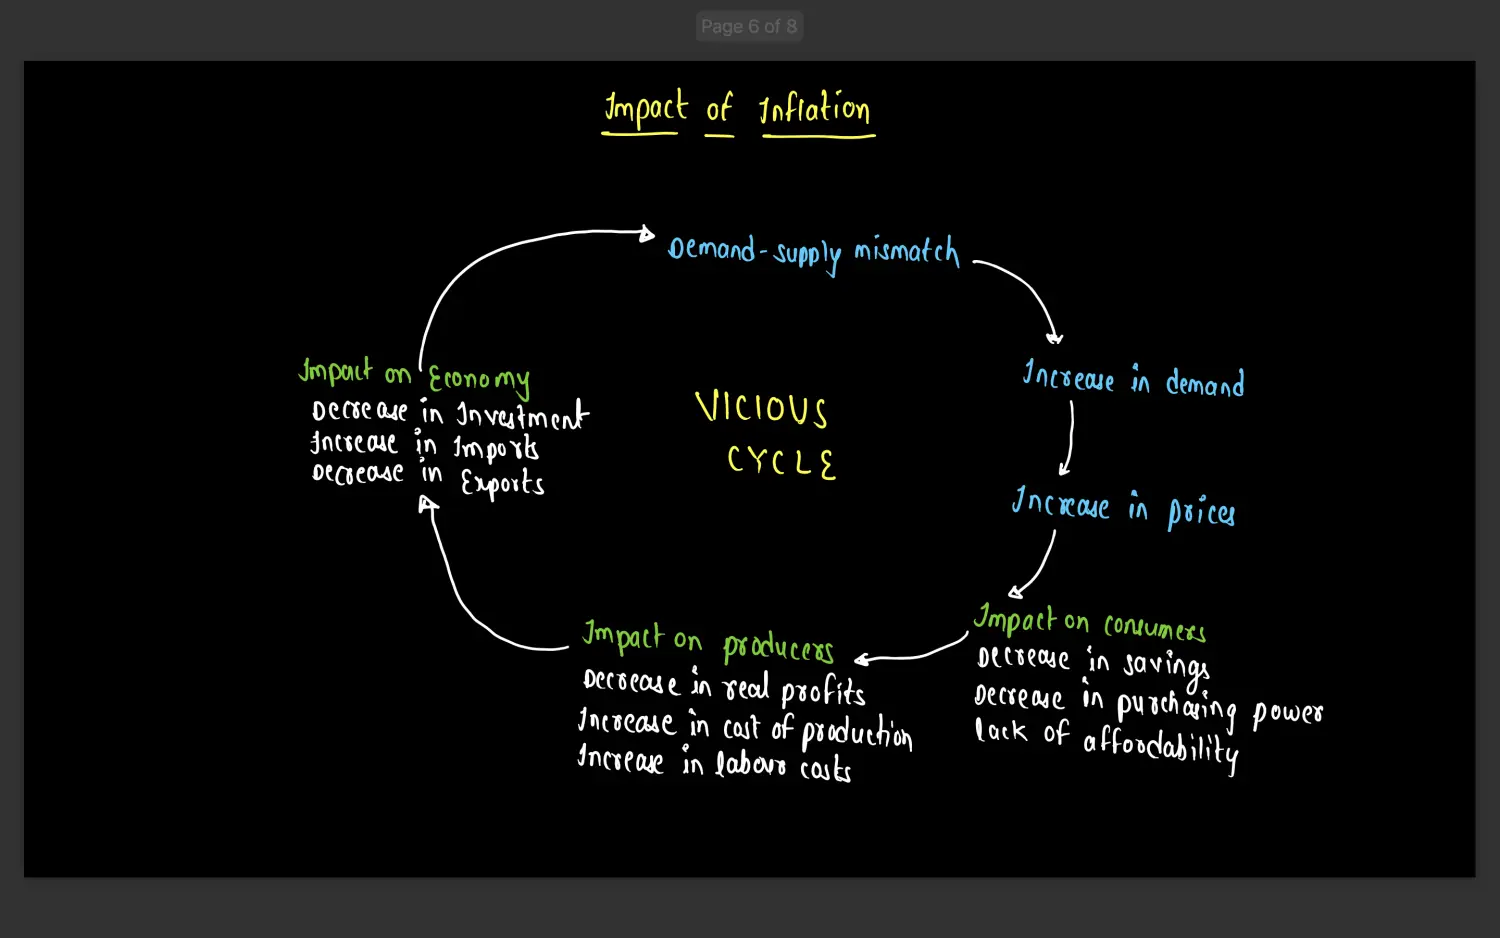 Page 6 of 8
Impact of Inflation
Demand-supply mismatch
Increase in demand
Increase in prices
Impact on consumers
Decrease in savings
Decrease in purchasing power
lack of affordability
Impact on producers
Decrease in real profits
Increase in cost of production
Increase in labour costs
Impact on Economy
Decrease in Investment
Increase in Imports
Decrease in Exports
VICIOUS
CYCLE